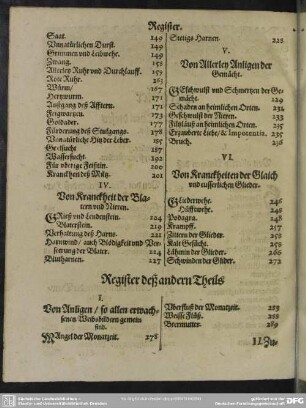 Register.
Saat. 149
Unnatürlichen Durst. 149
Grimmen und Leibwehe. 149
Zwang. 152
Allerley Ruhr und Durchlauff. 155
Rote Ruhr. 163
Würm/ 167
Herwurm. 171
Außgang deß Affters. 171
Feigwarzen. 173
Goldader. 177
Fürderung deß Stuelgangs. 178
Unnatürliche Hitz der Leber. 195
Gelsucht 187
Wassersucht. 192
Für übrige Feistin. 200
Kranckheit deß Miltz. 201
IV.
Von Kranckheit der Blatern und Nieren.
Grieß und Lendenstein. 204
Blaterstein. 219
Verhaltung deß Harns. 221
Harnwind/ auch Blödigkeit und Verserung der Blater. 224
Blutharnen. 227
Stetigs Harnen. 222
V.
Von Allerley Anligen der Gemächt.
Geschwulst und Schmertzen der Gemächt. 229
Schaden an heimlichen Orten. 232
Geschwulst der Nieren. 233
Fäulauß an heimlichen Orten. 235
Erzauberte Liebe/ & Impotentia. 235
Bruch. 236
VI.
Von Kranckheiten der Gleich und eusserlichen Glieder.
Gliederwehe. 246
Hüfftwehe. 248
Podagra. 248
Krampff. 257
Zittern der Glieder. 258
Kalt Gesücht. 258
Lähmen der Glieder. 266
Schwinden der Glider. 272
Register deß andern Theils
I.
Von Anligen/ so allen erwachsenen Weibsbildern gemein sind.
Mangel der Monatzeit. 278
Uberfluß der Monatzeit. 283
Weisse Flüß. 288
Bermutter. 289